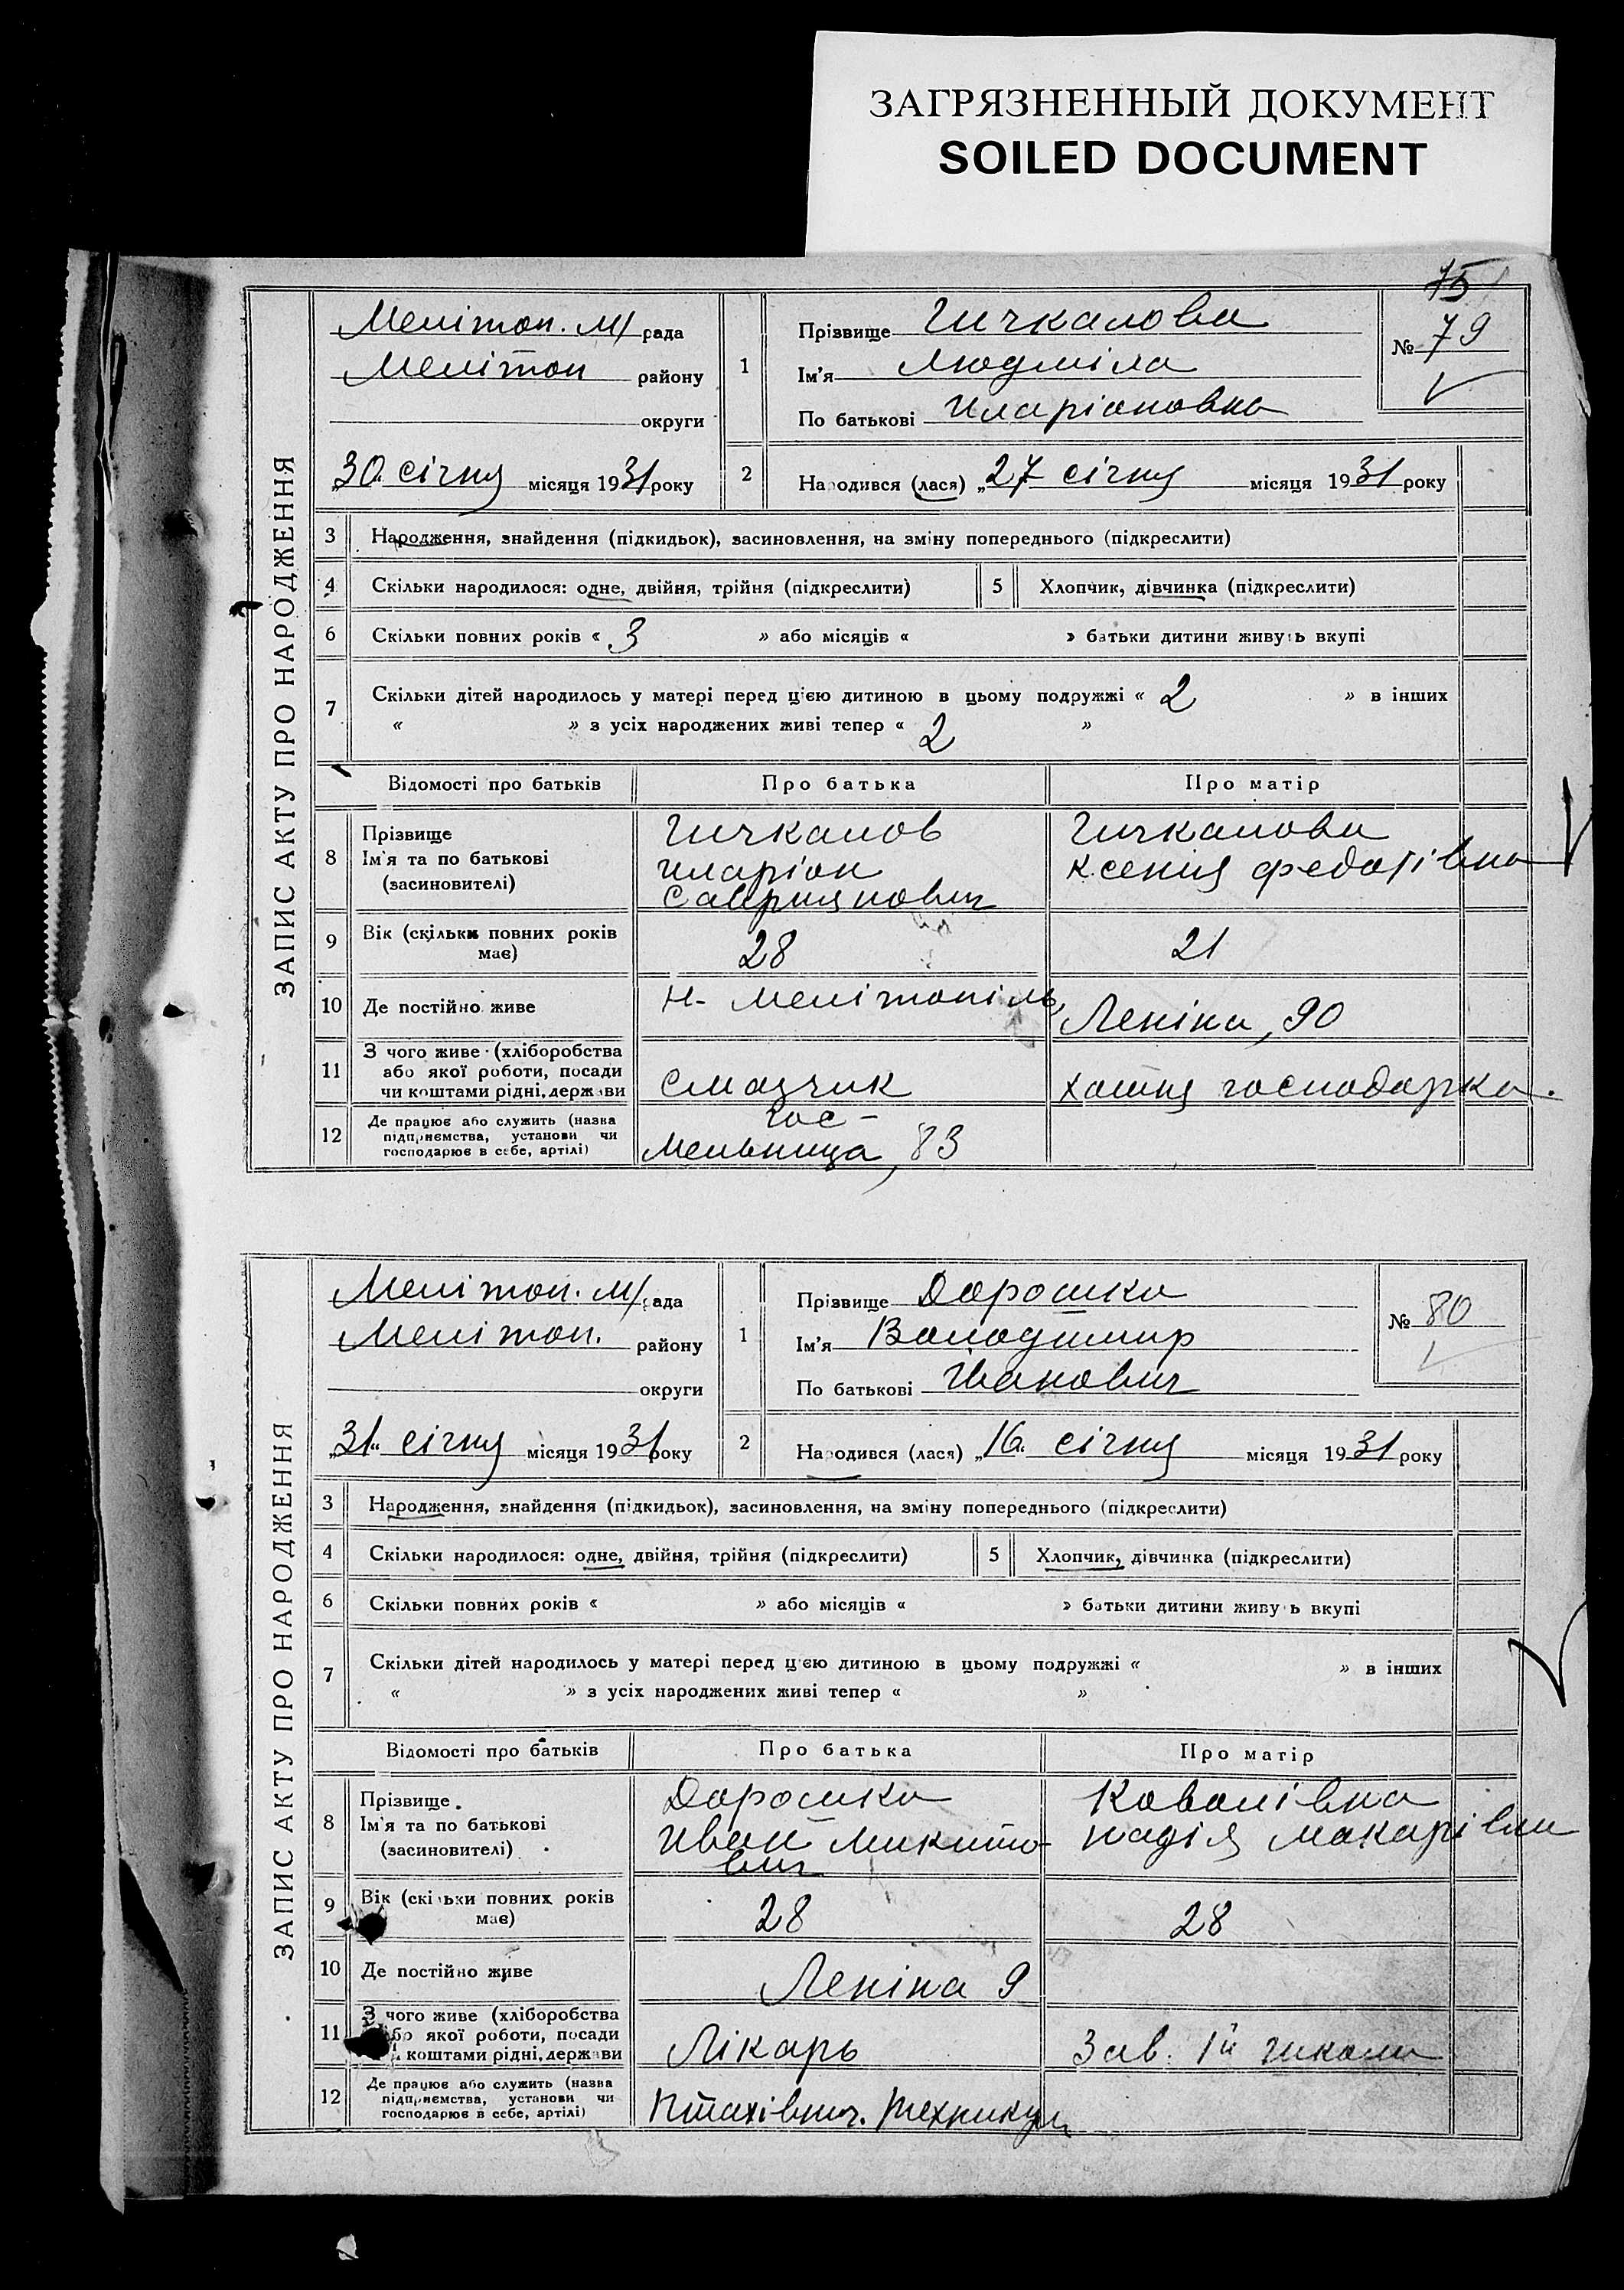 ЗАГРЯЗНЕННЫЙ ДОКУМЕНТ
SOILED DOCUMENT
75
ЗАПИС АКТУ ПРО НАРОДЖЕННЯ
Мелітоп. м/рада
Мелітоп району
округи
"30" січня місяця 1931 року
1 Прізвище Гичкалова
Ім'я Людміла
По батькові Иларіоновна
№ 79
2 Народився (лася) "27 січня місяця 1931 року
3 Народження, знайдення (підкидьок), засиновлення, на зміну попереднього (підкреслити)
4 Скільки народилося: одне, двійня, трійня (підкреслити) 5 Хлопчик, дівчинка (підкреслити)
6 Скільки повних років « 3 » або місяців « » батьки дитини живуть вкупі
7 Скільки дітей народилось у матері перед цією дитиною в цьому подружжі « 2 » в інших
« » з усіх народжених живі тепер « 2 »
Відомості про батьків Про батька Про матір
8 Прізвище Ім'я та по батькові (засиновителі)
Гичкалов
Иларіон
Гичкалова
Ксения Федотівна
9 Вік (скільки повних років має) 28 21
10 Де постійно живе Н- Мелітопіль, Леніна, 90
11 З чого живе (хліборобства або якої роботи, посади чи коштами рідні, держави
Смазчик хатня господарка.
12 Де працює або служить (назва підприємства, установи чи господарює в себе, артілі)
Гос-
Мельница, 83
ЗАПИС АКТУ ПРО НАРОДЖЕННЯ
Мелітоп. м/рада
Мелітоп. району
округи
"31" січня місяця 1931 року
1 Прізвище Дорошко
Ім'я Володимир
По батькові Іванович
№ 80
2 Народився (лася) "16" січня місяця 1931 року
3 Народження, знайдення (підкидьок), засиновлення, на зміну попереднього (підкреслити)
4 Скільки народилося: одне, двійня, трійня (підкреслити) 5 Хлопчик, дівчинка (підкреслити)
6 Скільки повних років « » або місяців « » батьки дитини живуть вкупі
7 Скільки дітей народилось у матері перед цією дитиною в цьому подружжі « » в інших
« » з усіх народжених живі тепер « »
Відомості про батьків Про батька Про матір
8 Прізвище Ім'я та по батькові (засиновителі)
Дорошко
Иван Микито-
вич
Ковалівна
Надія Макарівна
9 Вік (скільки повних років має) 28 28
10 Де постійно живе Леніна 9
11 З чого живе (хліборобства або якої роботи, посади чи коштами рідні, держави
Лікарь Зав. 1й школи
12 Де працює або служить (назва підприємства, установи чи господарює в себе, артілі)
Птахівнич. технікум